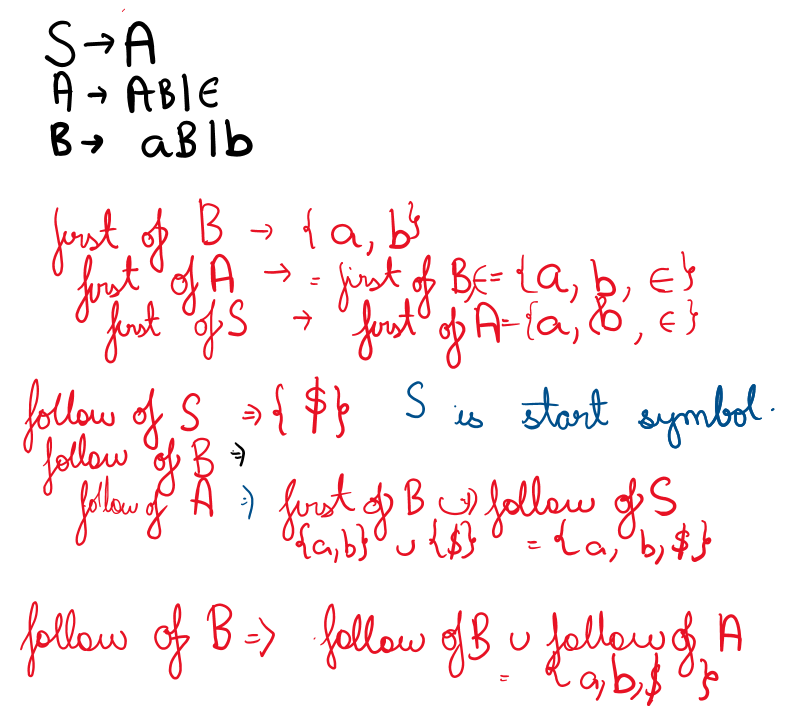 S → A
A → AB|ϵ
B → aB|b
first of B → {a, b}
first of A → = first of B, ϵ = {a, b, ϵ}
first of S → first of A = {a, b, ϵ}
follow of S ⇒ { $ } S is start symbol.
follow of B ⇒
follow of A ⇒ first of B ∪ follow of S
{a,b} ∪ {$} = {a, b, $}
follow of B ⇒ follow of B ∪ follow of A
= {a, b, $ }